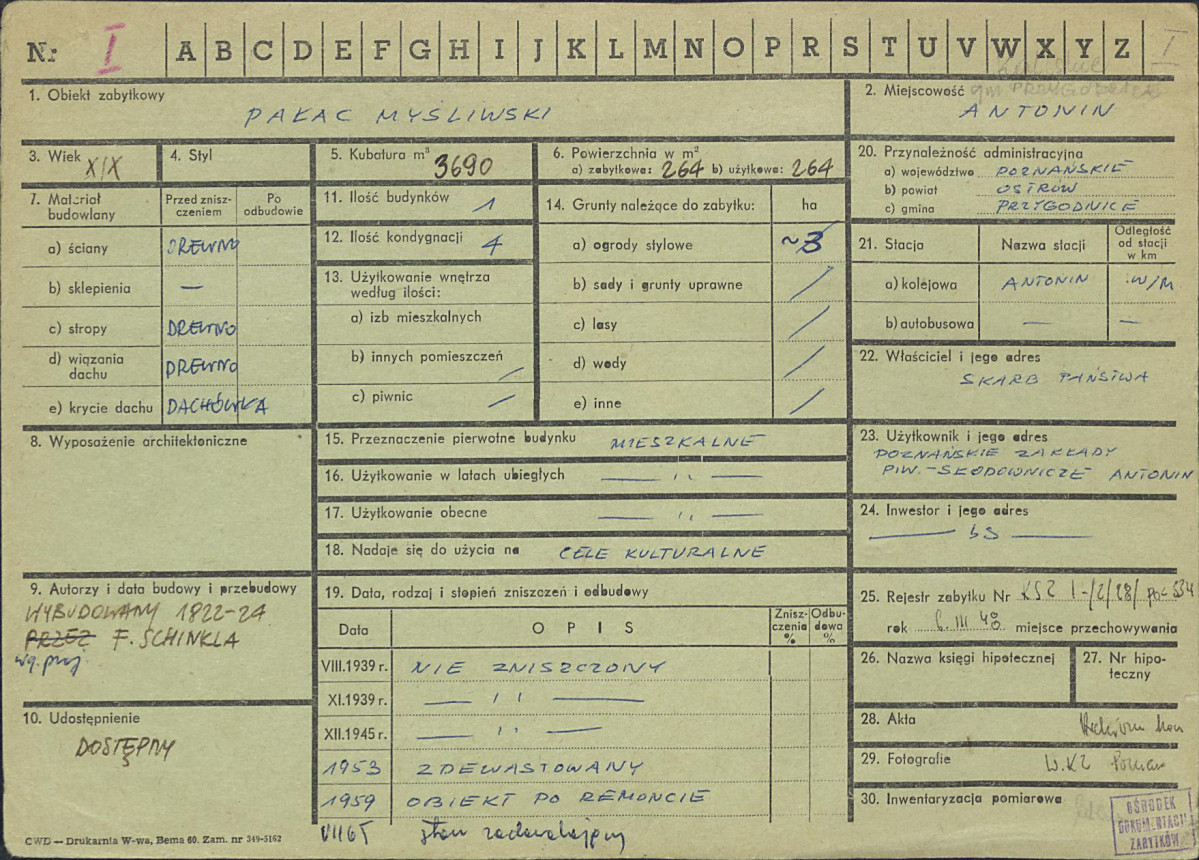 Nr I A B C D E F G H I J K L M N O P R S T U V W X Y Z I
1. Obiekt zabytkowy
PAŁAC MYŚLIWSKI
2. Miejscowość gm PRZYGODZICE
ANTONIN
3. Wiek XIX
4. Styl
5. Kubatura m³ 3690
6. Powierzchnia w m²
a) zabytkowa: 264 b) użytkowa: 264
7. Materiał budowlany
Przed zniszczeniem
Po odbudowie
a) ściany DREWNO
b) sklepienia —
c) stropy DREWNO
d) wiązania dachu DREWNO
e) krycie dachu DACHÓWKA
8. Wyposażenie architektoniczne
9. Autorzy i data budowy i przebudowy
WYBUDOWANY 1822-24
PRZEZ F. SCHINKLA
wg. proj.
10. Udostępnienie
DOSTĘPNY
11. Ilość budynków 1
12. Ilość kondygnacji 4
13. Użytkowanie wnętrza według ilości:
a) izb mieszkalnych
b) innych pomieszczeń /
c) piwnic /
14. Grunty należące do zabytku: ha
a) ogrody stylowe ~3
b) sady i grunty uprawne /
c) lasy /
d) wody /
e) inne /
15. Przeznaczenie pierwotne budynku MIESZKALNE
16. Użytkowanie w latach ubiegłych — ,, —
17. Użytkowanie obecne — ,, —
18. Nadaje się do użycia na CELE KULTURALNE
19. Data, rodzaj i stopień zniszczeń i odbudowy
Data O P I S Zniszczenia % Odbudowa %
VIII.1939 r. NIE ZNISZCZONY
XI.1939 r. — ,, —
XII.1945 r. — ,, —
1953 ZDEWASTOWANY
1959 OBIEKT PO REMONCIE
VII65 stan zadawalający
20. Przynależność administracyjna
a) województwo POZNAŃSKIE
b) powiat OSTRÓW
c) gmina PRZYGODNICE
21. Stacja Nazwa stacji Odległość od stacji w km
a) kolejowa ANTONIN W/M
b) autobusowa — —
22. Właściciel i jego adres
SKARB PAŃSTWA
23. Użytkownik i jego adres
POZNAŃSKIE ZAKŁADY
PIW.-SŁODOWNICZE ANTONIN
24. Inwestor i jego adres
— bs —
25. Rejestr zabytku Nr KSZ I-/2/28/ poz 534
rok 6.III 48 miejsce przechowywania
26. Nazwa księgi hipotecznej
27. Nr hipoteczny
28. Akta
29. Fotografie W.KZ Poznań
30. Inwentaryzacja pomiarowa
OŚRODEK
DOKUMENTACJI
ZABYTKÓW
CWD — Drukarnia W-wa, Bema 60. Zam. nr 349-5162